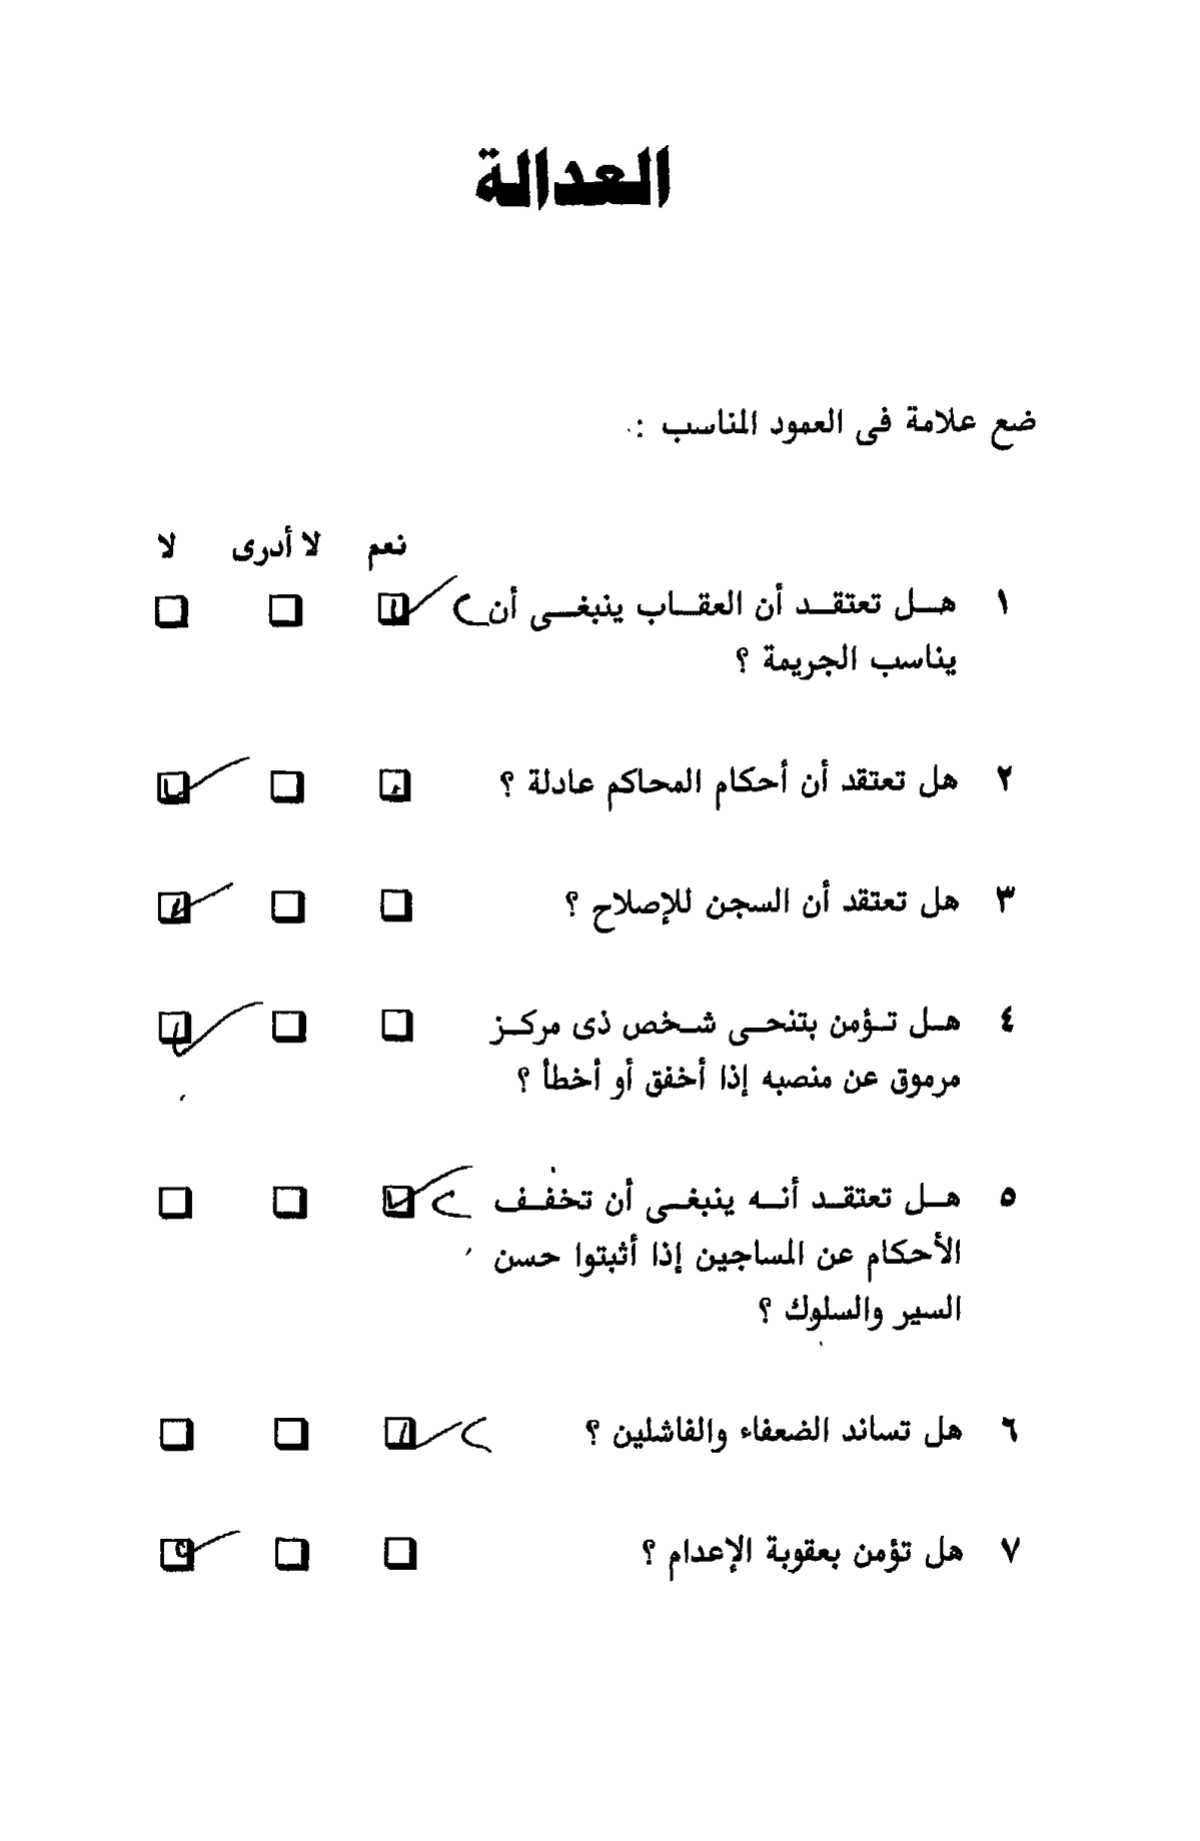 العدالة
ضع علامة فى العمود المناسب :
نعم لا أدرى لا
١ هـل تعتقـد أن العقـاب ينبغـى أن
يناسب الجريمة ؟
٢ هل تعتقد أن أحكام المحاكم عادلة ؟
٣ هل تعتقد أن السجن للإصلاح ؟
٤ هـل تـؤمن بتنحـى شـخص ذى مركـز
مرموق عن منصبه إذا أخفق أو أخطأ ؟
٥ هـل تعتقـد أنـه ينبغـى أن تخفـف
الأحكام عن المساجين إذا أثبتوا حسن
السير والسلوك ؟
٦ هل تساند الضعفاء والفاشلين ؟
٧ هل تؤمن بعقوبة الإعدام ؟